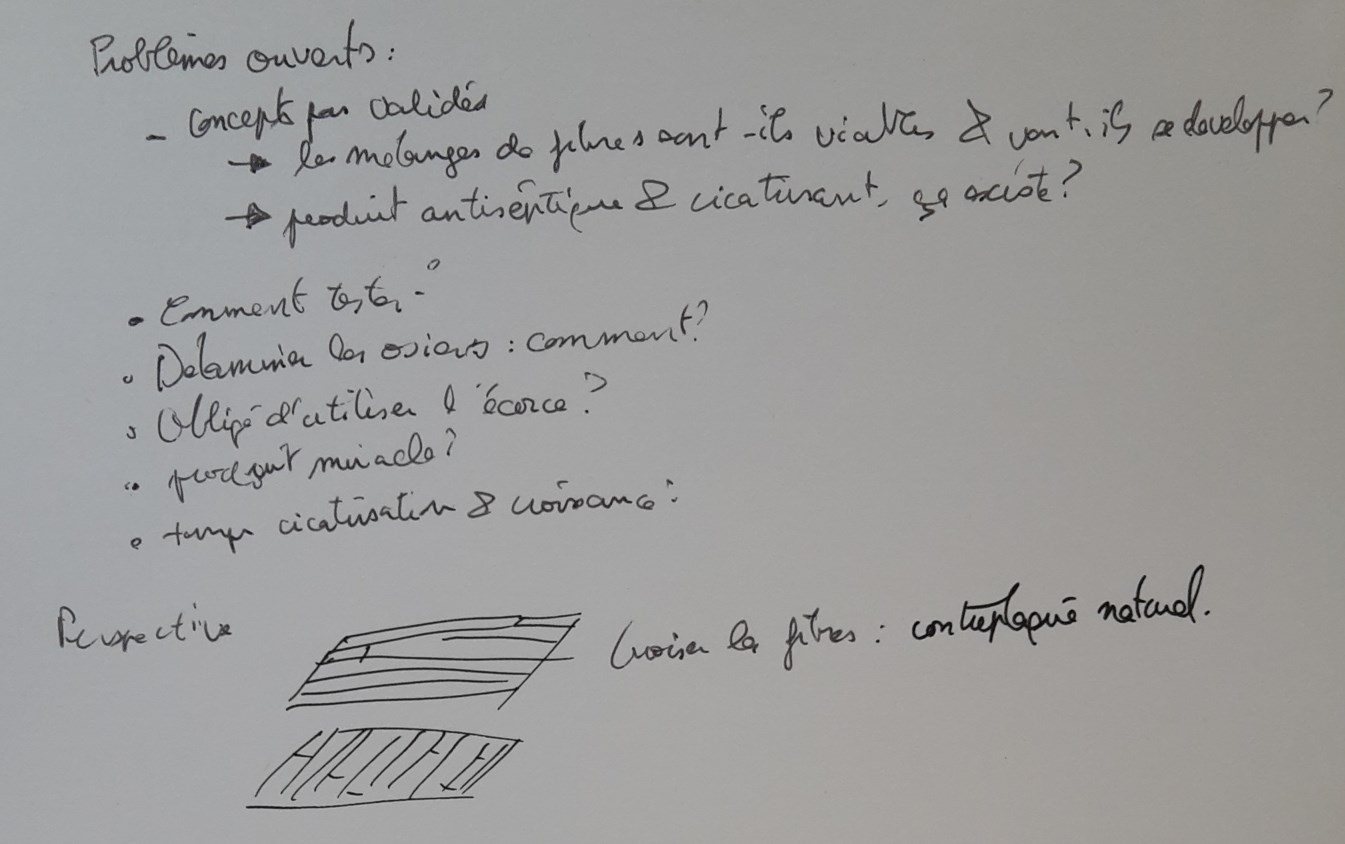 Problèmes ouverts :
- Concepts pas validés
→ les mélanges de fibres sont-ils viables & vont-ils se developper ?
→ produit antiséptique & cicatrisant, ça existe ?
• Comment tester ?
• Determiner les osiers : comment ?
• Obligé d'utiliser l'écorce ?
• produit miracle ?
• temps cicatrisation & croissance ?
Perspective
Croiser les fibres : contreplaqué naturel.